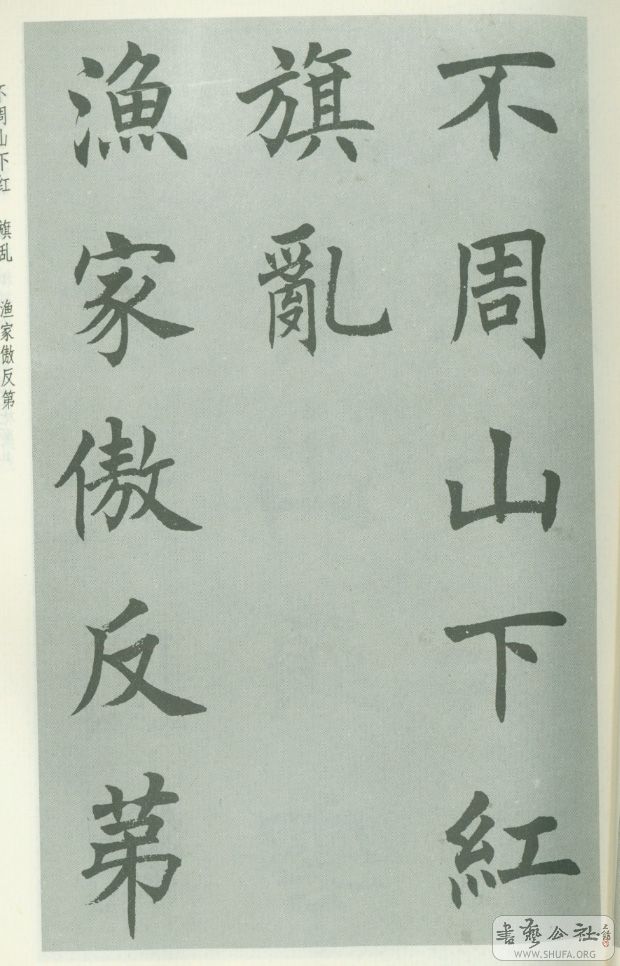 不周山下紅
旗亂
漁家傲反苐
不周山下红 旗乱 渔家傲反第
書藝公社
WWW.SHUFA.ORG